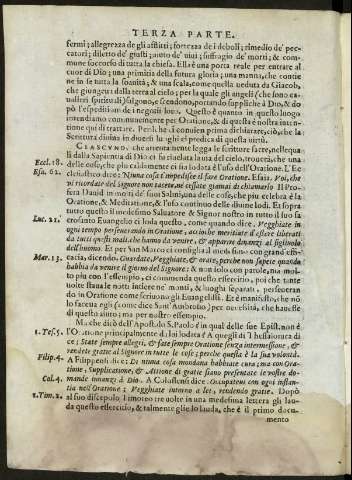 TERZA PARTE.
fermi; allegrezza de gli afflitti; fortezza de i deboli; rimedio de' pec-
catori; diletto de' giusti; aiuto de' uiui; suffragio de' morti; & com-
mune soccorso di tutta la chiesa. Ella è una porta reale per entrare al
cuor di Dio; una primitia della futura gloria; una manna, che contie
ne in se tutta la soauità; & una scala, come quella ueduta da Giacob,
che giungeua dalla terra al cielo; per la quale gli angeli (che sono ca-
ualieri spirituali) salgono, e scendono, portando suppliche à Dio, & do
pò l'espeditioni de i negotij loro. Questo è quanto in questo luogo
intendiamo communemente per Oratione, & di questa è nostra inten-
tione qui di trattare. Perilche ci conuien prima dichiarare, ciò, che la
Scrittura diuina in diuersi luoghi ci predica di questa virtù.
CIASCUNO, che attentamente legga le scritture sacre, nellequa
li dalla Sapientia di Dio ci fu riuelata la uia del cielo, trouerà, che una
Eccl. 18. delle cose, che piu caldamente ci sia lodata è l'uso dell'Oratione. L'Ec
clesiastico dice: Niuna cosa t'impedisce il fare Oratione. Esaia. Voi, che
Esa. 62. vi ricordate del Signore non tacete, ne cessate giamai di chiamarlo. Il Pro
feta Dauid in molti de' suoi Salmi, una delle cose, che piu celebra è la
Oratione, & Meditatione, & l'uso continuo delle diuine lodi. Et sopra
tutto questo il medesimo Saluatore & Signor nostro in tutto il suo sa
crosanto Euangelio ci loda questo, come quando dice. Vegghiate in
Luc. 21. ogni tempo perseuerando in Oratione; acciò che meritiate d'essere liberati
da tutti questi mali, che hanno da venire, & apparire dinanzi al figliuolo
dell'huomo. Et per San Marco ci consiglia il medesimo con grand'effi-
Mar. 13 cacia, dicendo. Guardate, Vegghiate, & orate, perche non sapete quando
habbia da venire il giorno del Signore: & non solo con parole, ma mol-
to piu con l'essempio, ci commenda questo essercitio, poi che tante
uolte staua le notti intiere ne' monti, & luoghi separati, perseueran
do in Oratione come scriuono gli Euangelisti. Et è manifesto, che nõ
lo faceua egli (come dice Sant'Ambrosio) per necessità, che hauesse
di questo aiuto; ma per nostro essempio.
Ma che dirò dell'Apostolo S. Paolo? in qual delle sue Epist. non è
1. Tes. 5. l'Oratione principalmente da lui lodata? A quegli di Thessalonica di
ce; State sempre allegri, & fate sempre Oratione senza intermessione, &
rendete gratie al Signore in tutte le cose; perche questa è la sua volontà.
Filip. 4. A Filippensi dice: Di niuna cosa mondana habbiate cura; ma con Ora-
tione, Supplicatione, & Attione di gratie siano presentate le vostre do-
Col. 4. mande innanzi à Dio. A Colossensi dice: Occupateui con ogni instan-
tia nell'Oratione; Vegghiate intorno a lei, rendendo gratie. Dopò
1. Tim. 2. al suo discepolo Timoteo tre uolte in una medesima lettera gli lau-
da questo essercitio, & talmente glie lo lauda, che è il primo docu-
mento